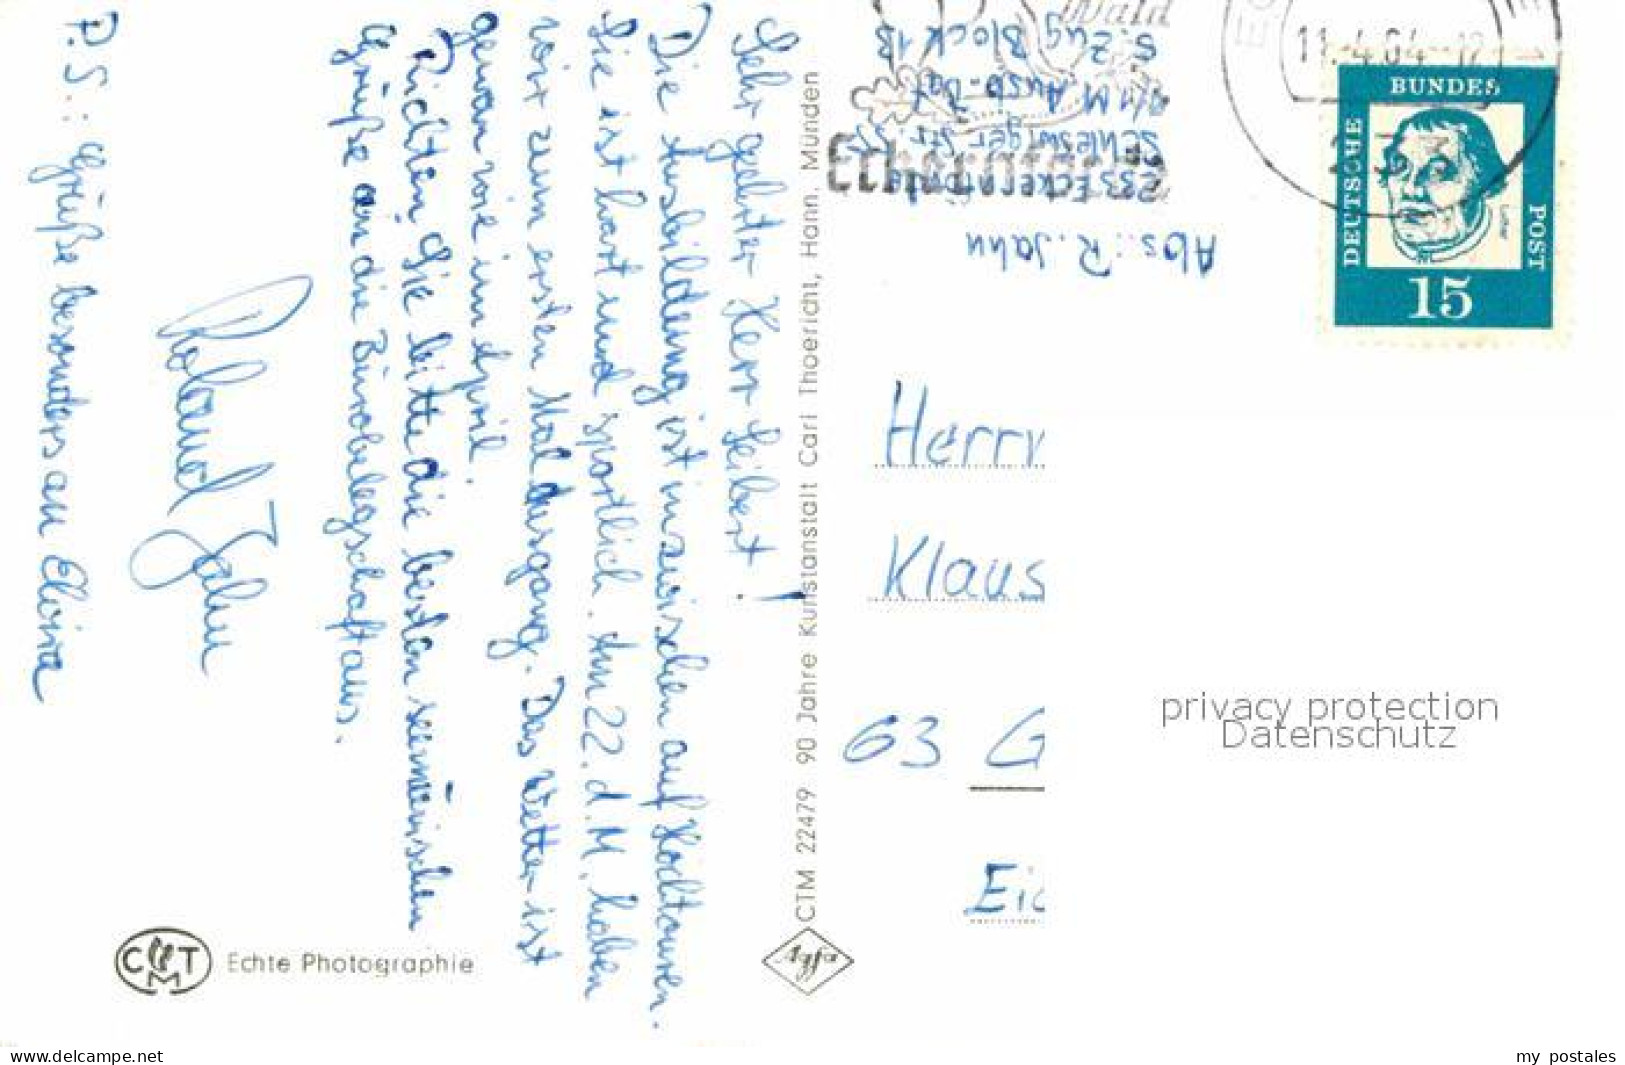 Sehr geehrter Herr Seibert!
Die Ausbildung ist inzwischen auf Hochtouren.
Sie ist hart und sportlich. Am 22. d. M. haben
wir zum ersten Mal Ausgang. Das Wetter ist
genau wie im April.
Richten Sie bitte die besten seemännischen
Grüße an die Bürobelegschaft aus.
Roland Jahn
P.S.: Grüße besonders an Elvira
CMT Echte Photographie
Agfa
CTM 22479 90 Jahre Kunstanstalt Carl Thoericht, Hann. Münden
Abs.: R. Jahn
233 Eckernförde
Schleswiger Str.
Ausb. Bat
6. Zug Block 13
Wald
11.-4.64-12
DEUTSCHE
BUNDES
POST
Luther
15
Herrn
Klaus
63 G
Eic
privacy protection
Datenschutz
www.delcampe.net
my_postales